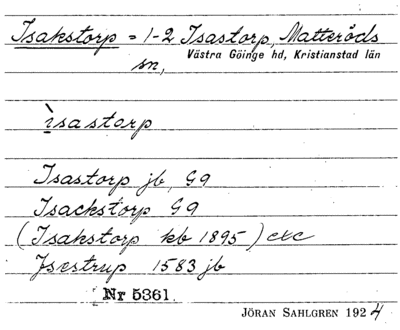 Isakstorp = 1-2 Isastorp, Matteröds
Västra Göinge hd, Kristianstad län
sn,
ìsastorp
Isastorp jb, G9
Isackstorp G9
(Isakstorp kb 1895) etc
Jsestrup 1583 jb
Nr 5361.
JÖRAN SAHLGREN 1924